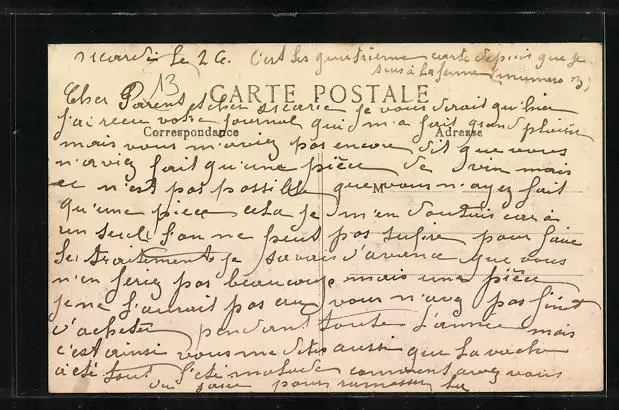 le 26. C'est les quatrième carte depuis que je
suis à la ferme (numero 3)
13
CARTE POSTALE
Cher Parent et cher je vous dirait qu'hier
j'ai recu votre journal qui m'a fait grand plaisir
Correspondance Adresse
mais vous m'aviez pas encore dit que vous
n'aviez fait qu'une pièce de vin mais
ce n'est pas possible que vous n'ayez fait
M
qu'une piece cela je m'en doutais car à
un seul l'on ne peut pas sufire pour faire
les traitements je savais d'avance que vous
n'en feriez pas beaucoup mais une pièce
je ne l'aurait pas cru vous n'avez pas finit
d'acheter pendant toute l'année mais
c'est ainsi vous me dites aussi que la vache
a été tout l'été malade comment avez vous
pour ramasser